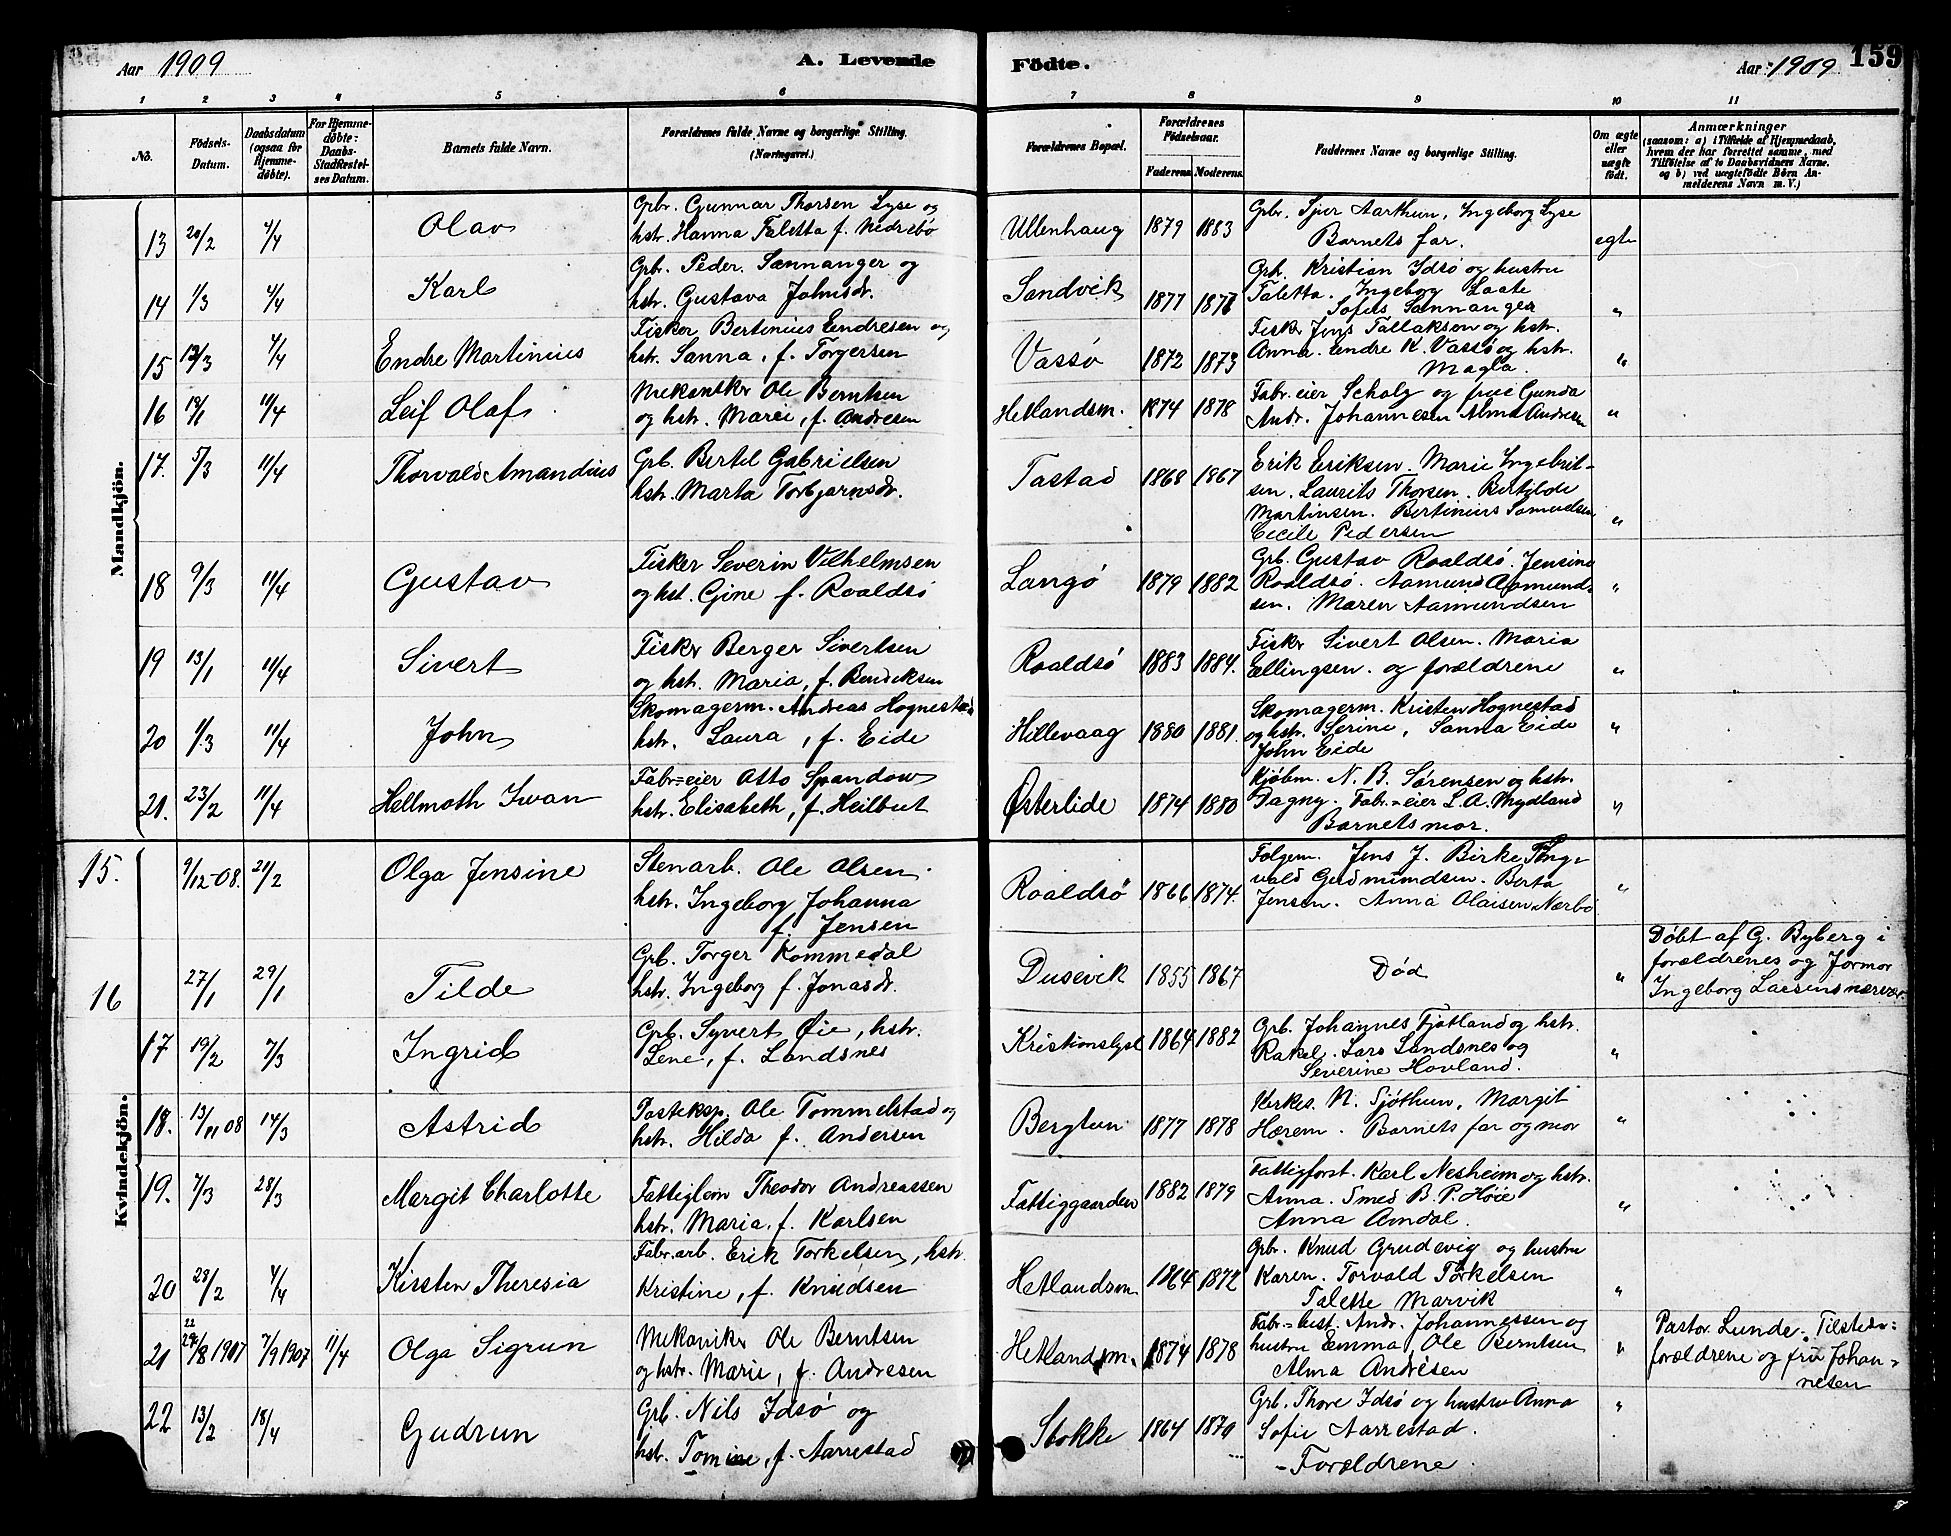 Aar 1909
A. Levende
Fødte.
Aar 1909
159
1 2 3 4 5 6 7 8 9 10 11
No.
Fødsels-Datum.
Daabsdatum (ogsaa for Hjemmedøbte).
For Hjemmedøbte: Daabs-Stadfæstelses Datum.
Barnets fulde Navn.
Forældrenes fulde Navne og borgerlige Stilling. (Næringsvei.)
Forældrenes Bopæl.
Forældrenes Fødselsaar.
Faderens. Moderens.
Faddernes Navne og borgerlige Stilling.
Om ægte eller uægte født.
Anmærkninger
(saasom: a) i Tilfælde af Hjemmedaab,
hvem der har forrettet samme, med
Tilføielse af to Daabsvidners Navne,
og b) ved uægtefødte Børn Anmelderens Navn m. V.)
Mandkjön.
13 20/2 4/4 Olav
Grbr. Gunnar Thorsen Lyse og
hstr. Hanna Taletta f. Nedrebø
Ullenhaug 1879 1883
Grbr. Sjur Aarthun, Ingeborg Lyse
Barnets far.
egte
14 1/3 4/4 Karl
Grb. Peder Sannanger og
hstr. Gustava Johnsdr.
Sandvik 1877
Grb. Kristian Idsø og hustru
Taletta. Ingeborg Laate
Sofus Sannanger
"
15 12/3 4/4 Endre Martinius
Fisker Bertinius Endresen og
hstr. Sanna, f. Torgersen
Vassø 1872 1873
Fisker Jens Tallaksen og hstr.
Anna. Endre K. Vassø og hstr.
Magla.
"
16 18/1 11/4 Leif Olaf
Mekaniker Ole Berntsen
og hstr. Marei, f. Andresen
Hetlandsm. 1874 1878
Fabr.eier Scholy og frue Gunda
Andr. Johannesen Alma Andresen
"
17. 5/3 11/4 Thorvald Amandius
Grb. Bertel Gabrielsen
hstr. Marta Torbjørnsdr.
Tastad 1868 1867
Erik Eriksen. Marie Ingebrit-
sen. Laurits Thorsen. Bertilde
Martinsen. Bertinius Samuelsen
Cecile Pedersen
"
18 9/3 11/4 Gustav
Fisker Severin Vilhelmsen
og hst. Gine f. Roaldsø
Langø 1879 1882
Grb. Gustav Roaldsø. Jensine
Roaldsø. Aamund Aamund-
sen. Maren Aamundsen
"
19 13/1 11/4 Sivert
Fisker Berger Sivertsen
og hst. Maria, f. Bendiksen
Roaldsø 1883 1884.
Fisker Sivert Olsen. Maria
Ellingsen. og forældrene
"
20 1/3 11/4 John
Skomagerm. Andreas Hognestad
hstr. Laura, f. Eide
Hillevaag 1880 1881.
Skomagerm. Kristen Hognestad
og hstr. Serine, Sanna Eide
John Eide
"
21. 23/2 11/4 Hellmoth Iwan
Fabr=eier Otto Spandow
hstr. Elisabeth, f. Heilbut
Østerlide 1874 1880
Kjøbm. N. B. Sørensen og hstr.
Dagny. Fabr.=eier L. A. Mydland
Barnets mor.
"
Kvindekjön.
15. 9/12-08. 21/2 Olga Jensine
Stenarb. Ole Olsen
hstr. Ingeborg Johanna
f. Jensen
Roaldsø 1866 1874.
Folgem. Jens J. Birke Tong-
vald Gudmundsen. Berta
Jensen. Anna Olaisen Nærbø
"
16 27/1 29/1 Tilde
Grb. Torger Kommedal
hstr. Ingeborg f. Jonasdr.
Dusevik 1855 1867
Død
"
Døbt af G. Byberg i
forældrenes og Jormor
Ingeborg Larsens nærvær.
17 19/2 7/3 Ingrid
Grb. Syvert Øie, hstr.
Lene, f. Landsnes
Kristianslyst 1864 1882
Grb. Johannes Fjotland og hstr.
Rakel. Lars Landsnes og
Severine Hovland.
"
18. 13/11 08 14/3 Astrid
Posteksp. Ole Tommelstad og
hstr. Hilda f. Andersen
Bergtun 1877 1878
Kirkes. N. Sjøthun, Margit
Hærem. Barnets far og mor
"
19. 7/3 28/3 Margit Charlotte
Fattiglem Theodor Andreassen
hstr. Maria, f. Karlsen
Fattiggaarden 1882 1879
Fattigforst. Karl Nesheim og hstr.
Anna. Smed B. P. Høie
Anna Omdal.
"
20 28/2 4/4 Kirsten Theresia
Fabr.arb. Erik Torkelsen, hstr.
Kristine, f. Knudsen
Hetlandsm 1864 1872
Grbr. Knud Grudevig og hustru
Karen. Torvald Torkelsen
Talette Marvik
"
21 22/8 1907 7/9 1907 11/4 Olga Sigrun
Mekaniker Ole Berntsen
og hstr. Marie, f. Andresen
Hetlandsm. 1874 1878
Fabr=best. Andr. Johannessen og
hustru Emma, Ole Berntsen
Alma Andresen
"
Pastor Lunde. Tilstede:
forældrene og fru Johan-
nesen
22 13/2 18/4 Gudrun
Grb. Nils Idsø og
hstr. Tomine, f. Aarrestad
Stokke 1864 1870
Grb. Thore Idsø og hustru Anna
Sofie Aarrestad.
-Forældrene.
"